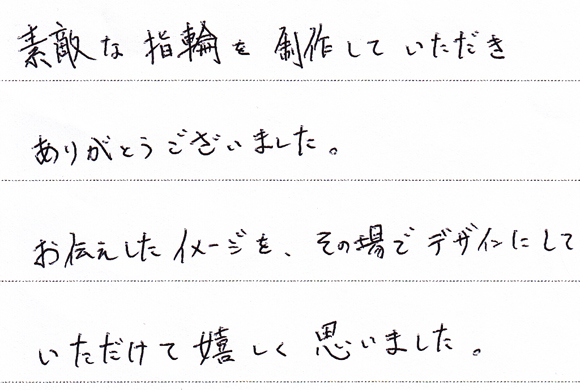 素敵な指輪を制作していただき
ありがとうございました。
お伝えしたイメージを、その場でデザインにして
いただけて嬉しく思いました。